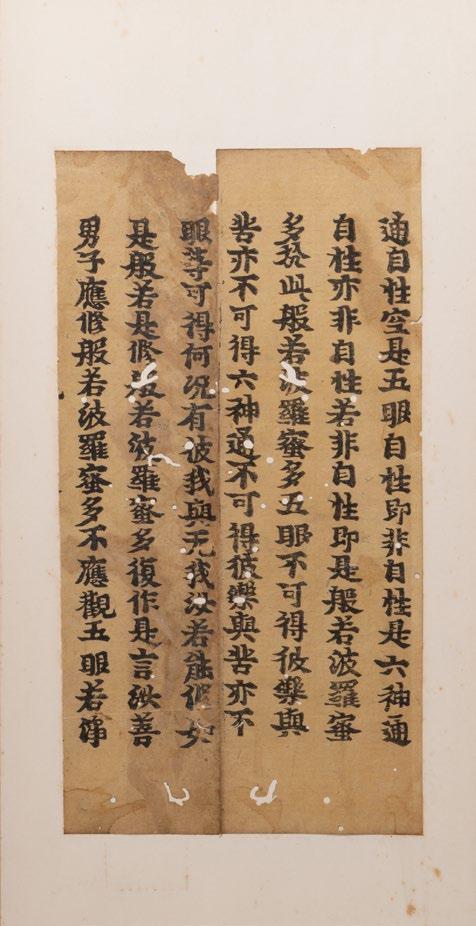 通自性空是五眼自性即非自性是六神通
自性亦非自性若非自性即是般若波羅蜜
多於此般若波羅蜜多五眼不可得彼樂與
苦亦不可得六神通不可得彼樂與苦亦不
眼等可得何況有彼我與无我汝若能修如
是般若是修般若波羅蜜多復作是言汝善
男子應修般若波羅蜜多不應觀五眼若淨